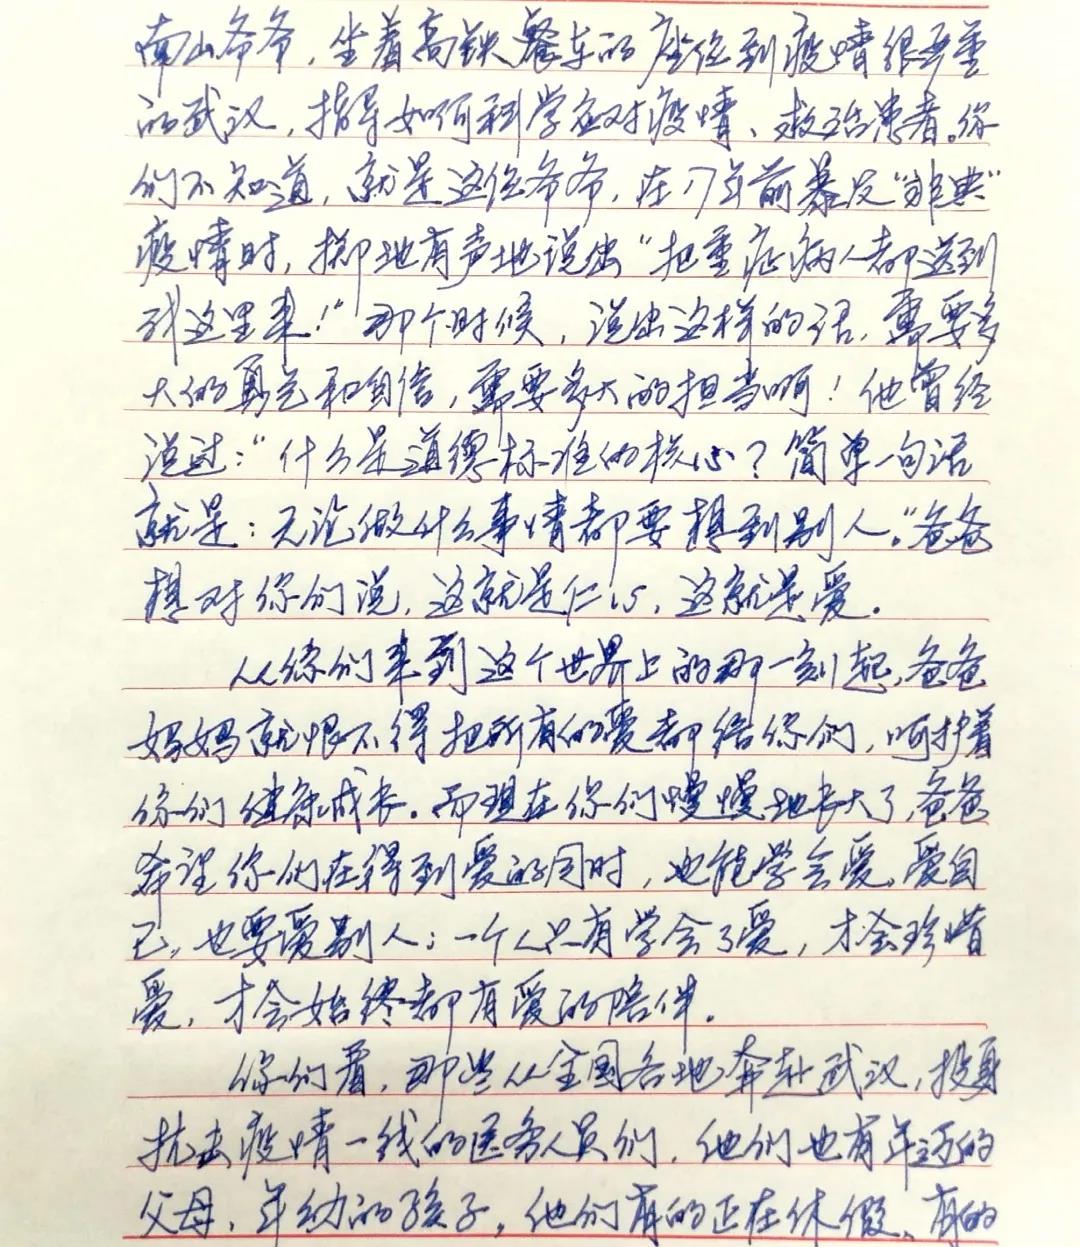 南山爷爷，坐着高铁餐车的座位到疫情很严重
的武汉，指导如何科学应对疫情、救治患者。你
们不知道，就是这位爷爷，在17年前暴发“非典”
疫情时，掷地有声地说出“把重症病人都送到
我这里来！”那个时候，说出这样的话，需要多
大的勇气和自信，需要多大的担当啊！他曾经
说过：“什么是道德标准的核心？简单一句话
就是：无论做什么事情都要想到别人。”爸爸
想对你们说，这就是仁心，这就是爱。
从你们来到这个世界上的那一刻起，爸爸
妈妈就恨不得把所有的爱都给你们，呵护着
你们健康成长。而现在你们慢慢地长大了，爸爸
希望你们在得到爱的同时，也能学会爱。爱自
己，也要爱别人；一个人只有学会了爱，才会珍惜
爱，才会始终都有爱的陪伴。
你们看，那些从全国各地奔赴武汉，投身
抗击疫情一线的医务人员们，他们也有年迈的
父母、年幼的孩子，他们有的正在休假、有的